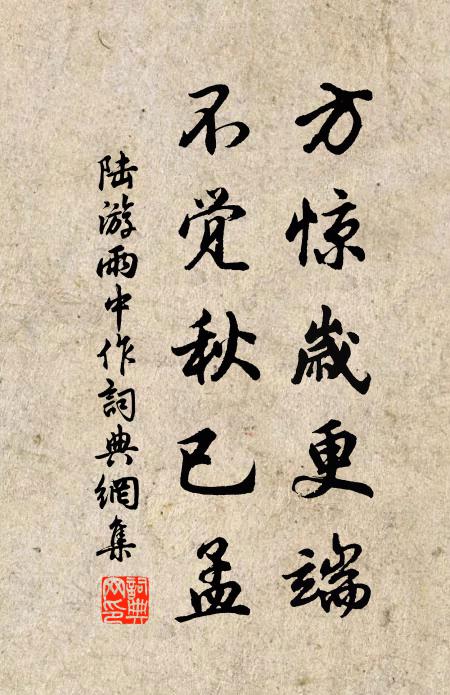 方惊岁更端
不觉秋已孟
陆游雨中作词典網集